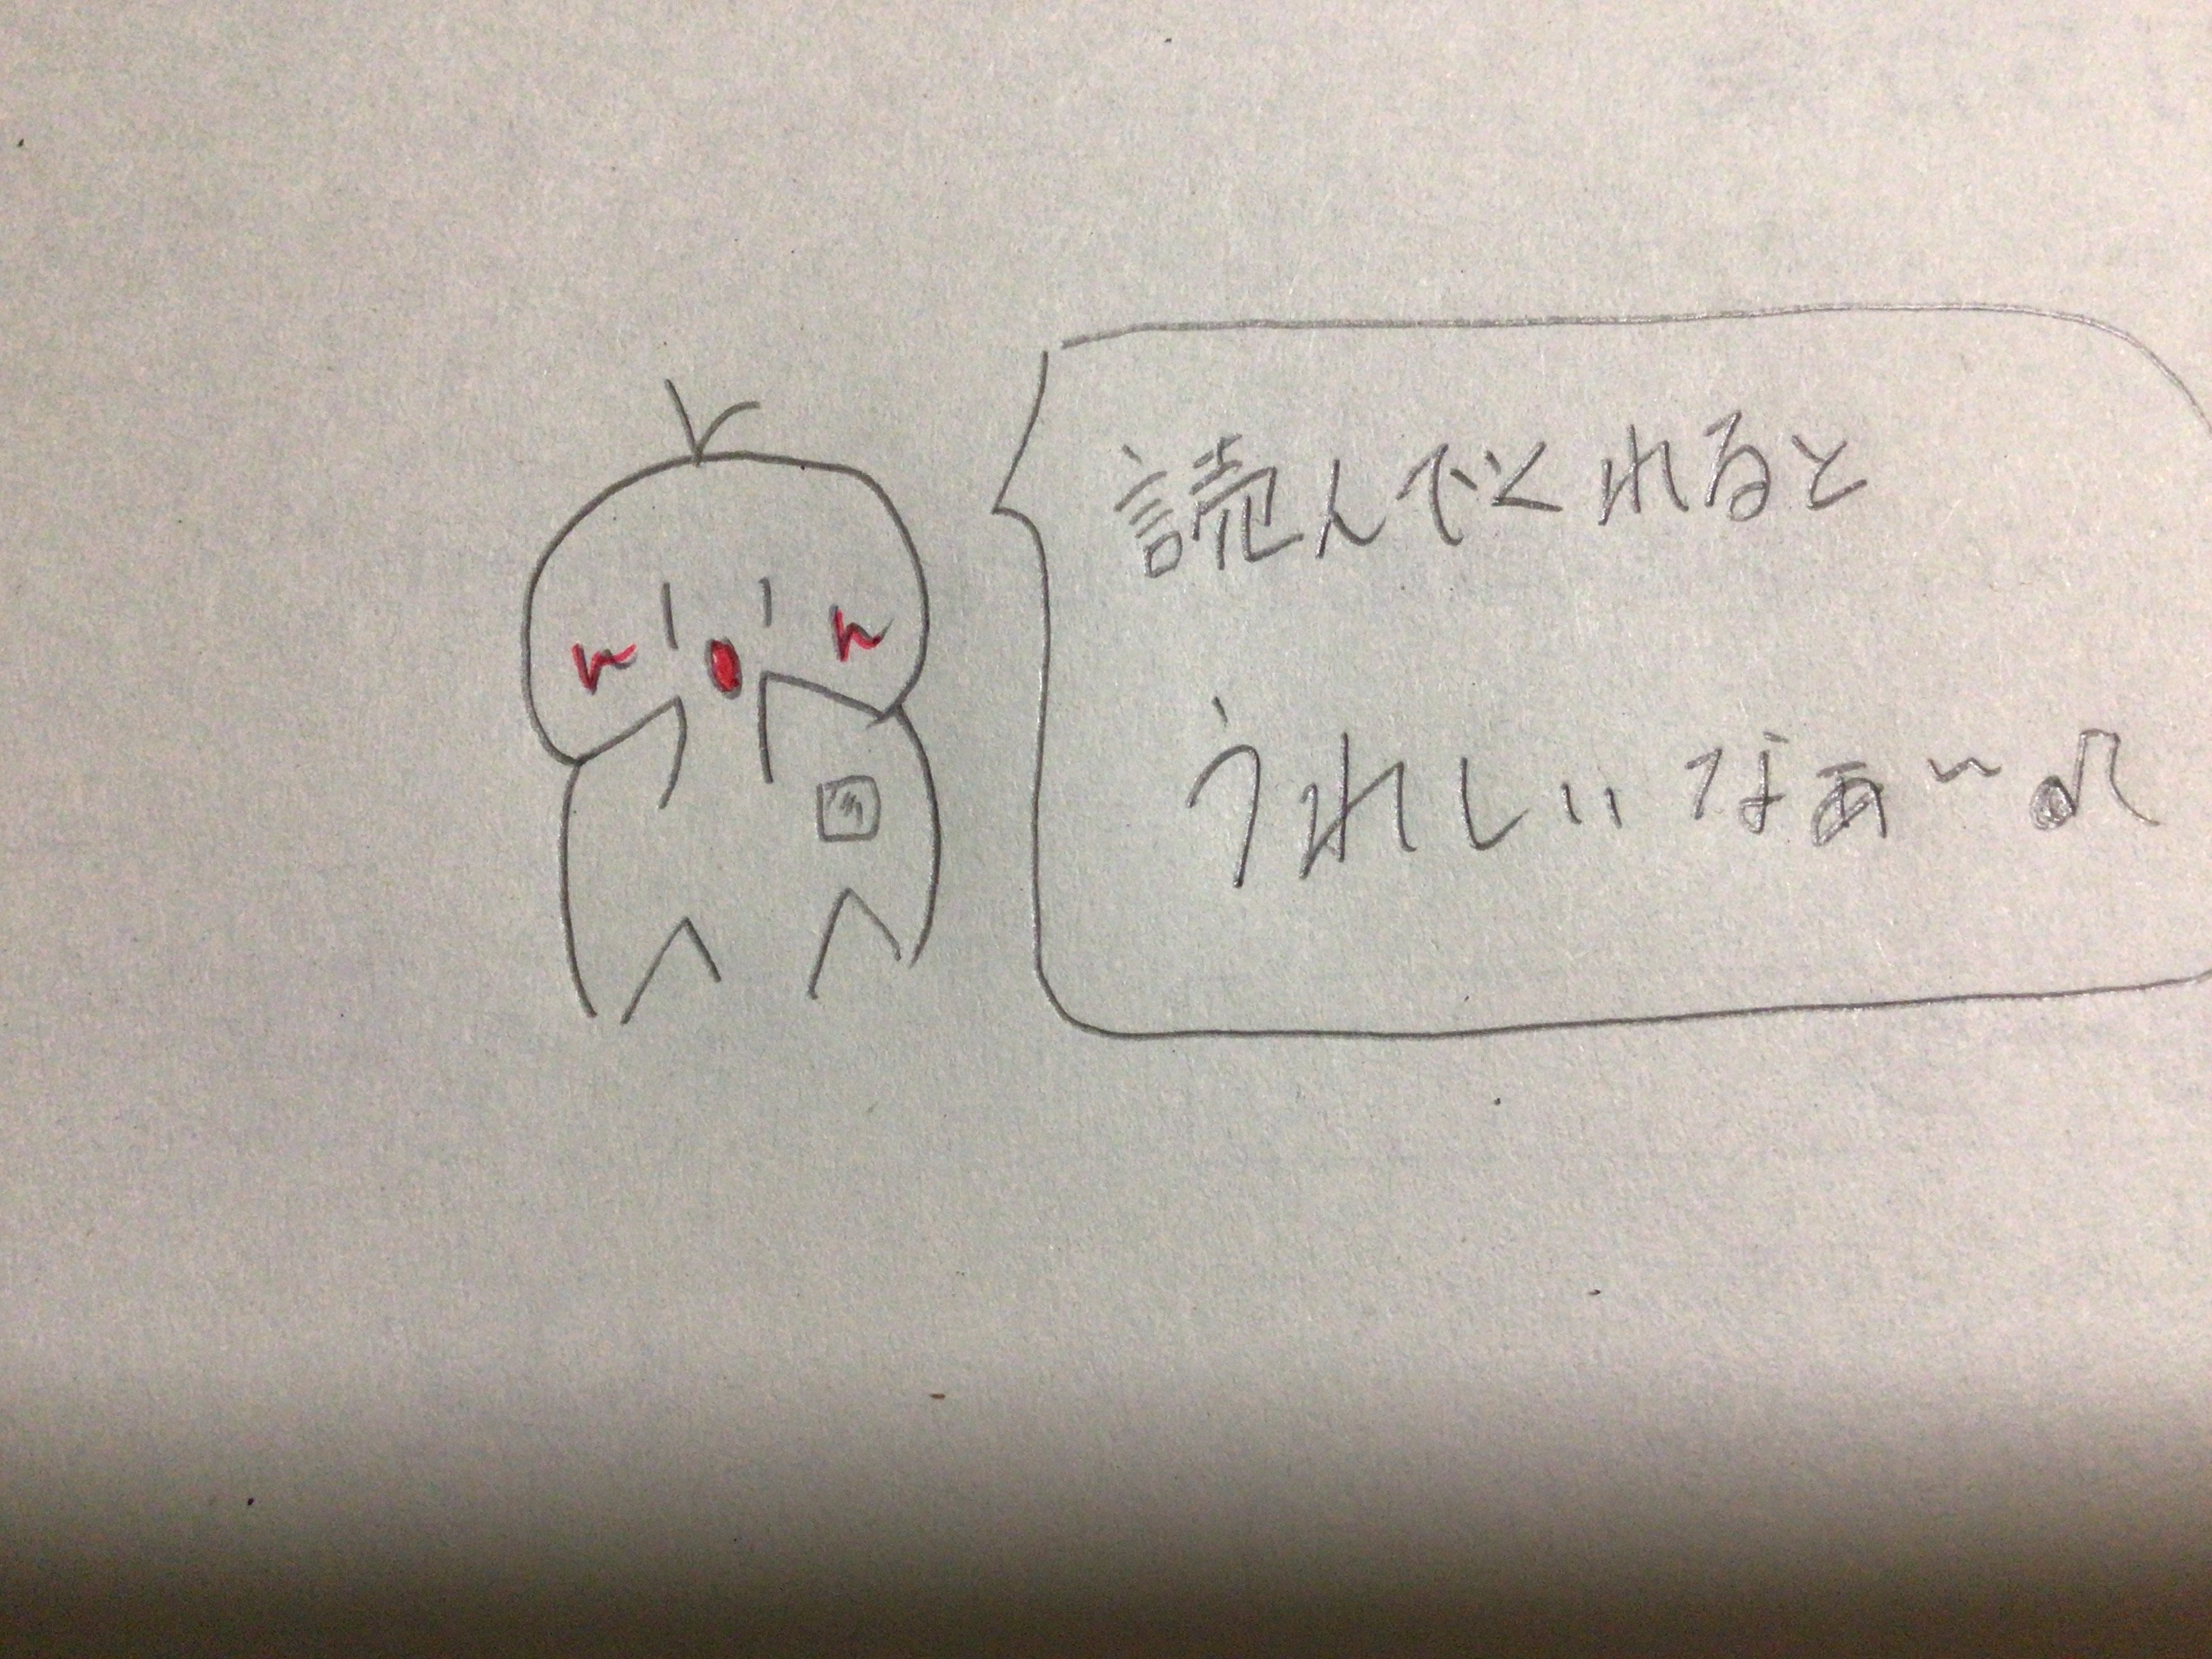 読んでくれると
うれしいなぁ〜♪